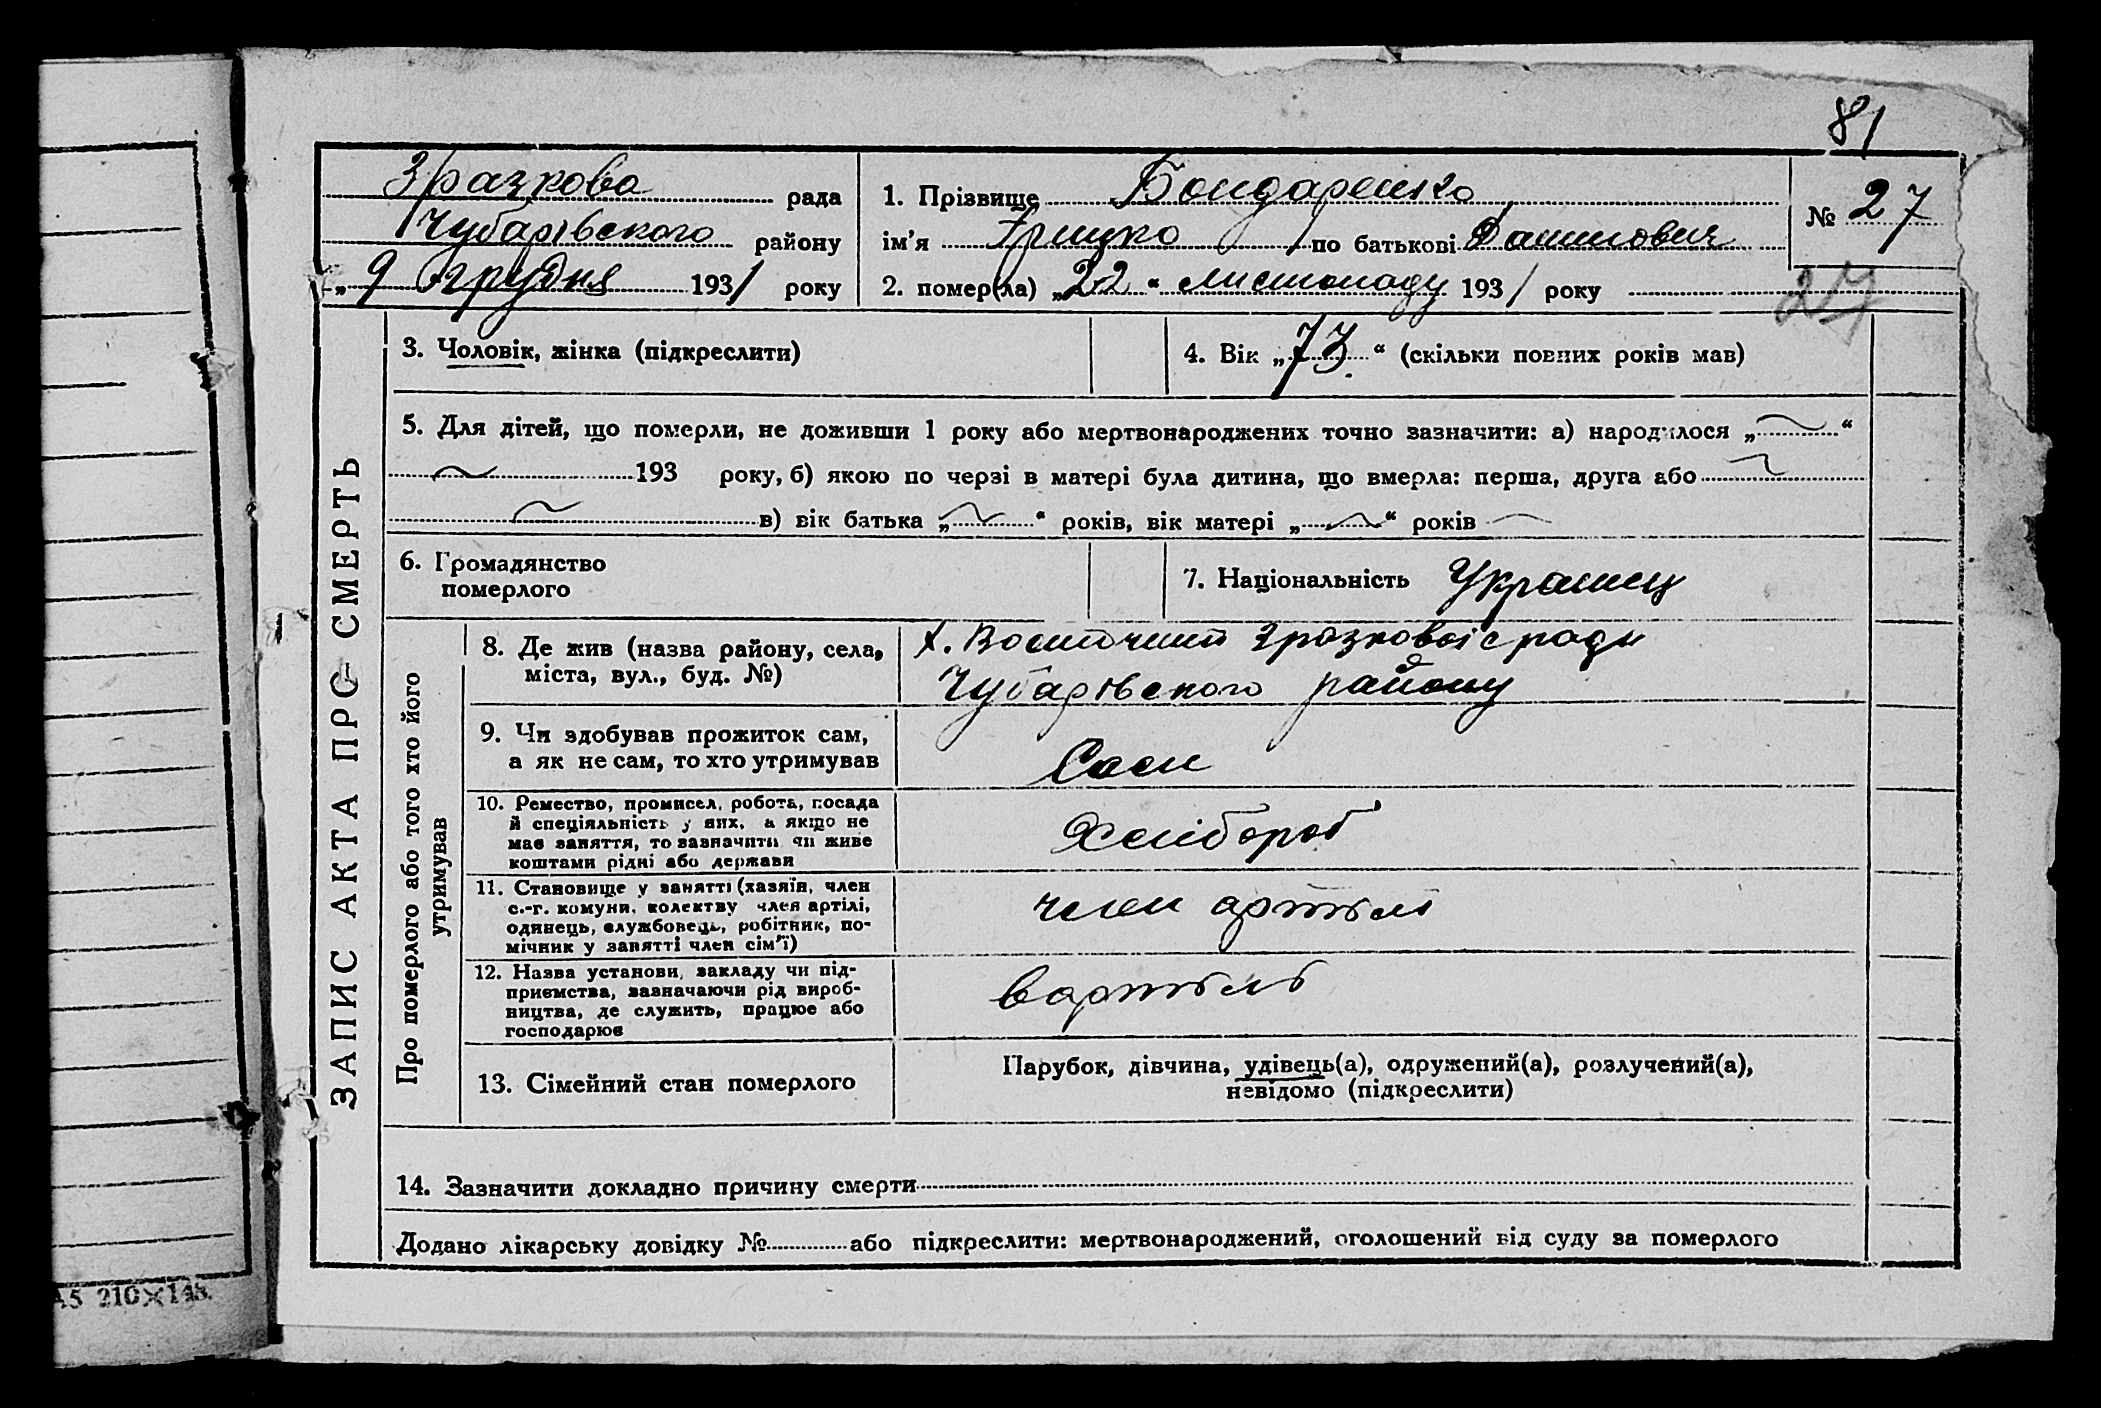 81
Зразкова рада
Чубарівського району
„ 9 грудня 1931 року
1. Прізвище Бондаренко
ім’я Грицко по батькові Данилович
2. помер(ла) „22“ листопаду 1931 року
№ 27
27
ЗАПИС АКТА ПРО СМЕРТЬ
3. Чоловік, жінка (підкреслити)
4. Вік „73“ (скільки повних років мав)
5. Для дітей, що померли, не доживши 1 року або мертвонароджених точно зазначити: а) народилося „ “
193 року, б) якою по черзі в матері була дитина, що вмерла: перша, друга або
в) вік батька „ “ років, вік матері „ “ років
6. Громадянство
померлого
7. Національність Українец
Про померлого або того хто його
утримував
8. Де жив (назва району, села,
міста, вул., буд. №)
х. Зразкової с ради
Чубарівського району
9. Чи здобував прожиток сам,
а як не сам, то хто утримував
Сам
10. Ремество, промисел, робота, посада
й спеціяльність у них, а якщо не
має заняття, то зазначити чи живе
коштами рідні або держави
Хлібороб
11. Становище у занятті (хазяїн, член
с.-г. комуни, колектву член артілі,
одинець, службовець, робітник, по-
мічник у занятті член сім’ї)
член артілі
12. Назва установи, закладу чи під-
приємства, зазначаючи рід вироб-
ництва, де служить, працює або
господарює
вартіль
13. Сімейний стан померлого
Парубок, дівчина, удівець(а), одружений(а), розлучений(а),
невідомо (підкреслити)
14. Зазначити докладно причину смерти
Додано лікарську довідку № або підкреслити: мертвонароджений, оголошений від суду за померлого
А5 210×148.